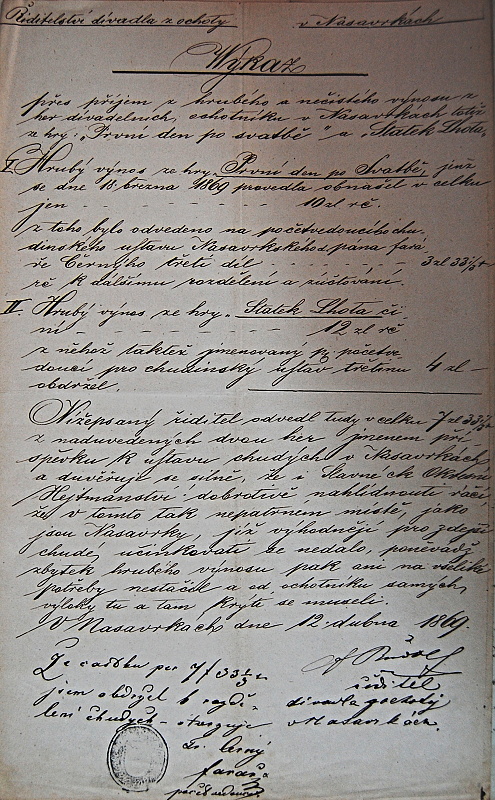 Řiditelství divadla z ochoty v Nasavrkách
Výkaz
přes příjem z hrubého a nečistého výnosu z
her divadelních, ochotníku v Nasavrkách totiž
z hry: „První den po svatbě" a „Statek Lhota„
I. Hrubý výnos ze hry „První den po Svatbě„ jenž
se dne 15. března 1869 provedla obnášel v celku
jen - - - - - - - - 10 zl rč.
z toho bylo odvedeno na početvedoucího chu-
dinského ústavu Nasavrkského d. pána fará-
ře Černýho třetí díl - - - - - 3 zl 33 1/3 x
rč k dalšímu rozdělení a zúčtování.
II. Hrubý výnos ze hry „Statek Lhota či-
ní - - - - - - - - 12 zl rč
z něhož taktéž jmenovaný p. početve-
doucí pro chudinský ústav třetinu 4 zl –
obdržel.
Nížepsaný řiditel odvedl tudy v celku 7 zl 33 1/3 x
z naduvedených dvou her jmenem pří-
spěvku k ústavu chudých v Nasavrkách,
a důvěřuje se silně, že i Slavné ck Okresní
Hejtmanství dobrotivě nahlídnouti ráčí
že v tomto tak nepatrném místě, jako
jsou Nasavrky, již výhodněji pro zdejší
chudé účinkovati se nedalo, ponevadž
zbytek hrubého výnosu pak ani na všeliké
potřeby nestačil a od ochotníku samých,
výloky tu a tam krýti se museli.
V Nasavrkách dne 12. dubna 1869.
řiditel
divadla z ochoty
v Nasavrkách.
Že částku per 7 f 33 1/3 x
jsem obdržel k rozdě-
lení chudých – stvrzuje
Černý
farář